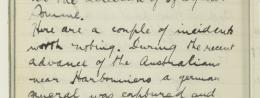 Tommel.
Here are a couple of incidents
worth noting. During the recent
advance of the Australians
near Harbonniers a german
general was captured and